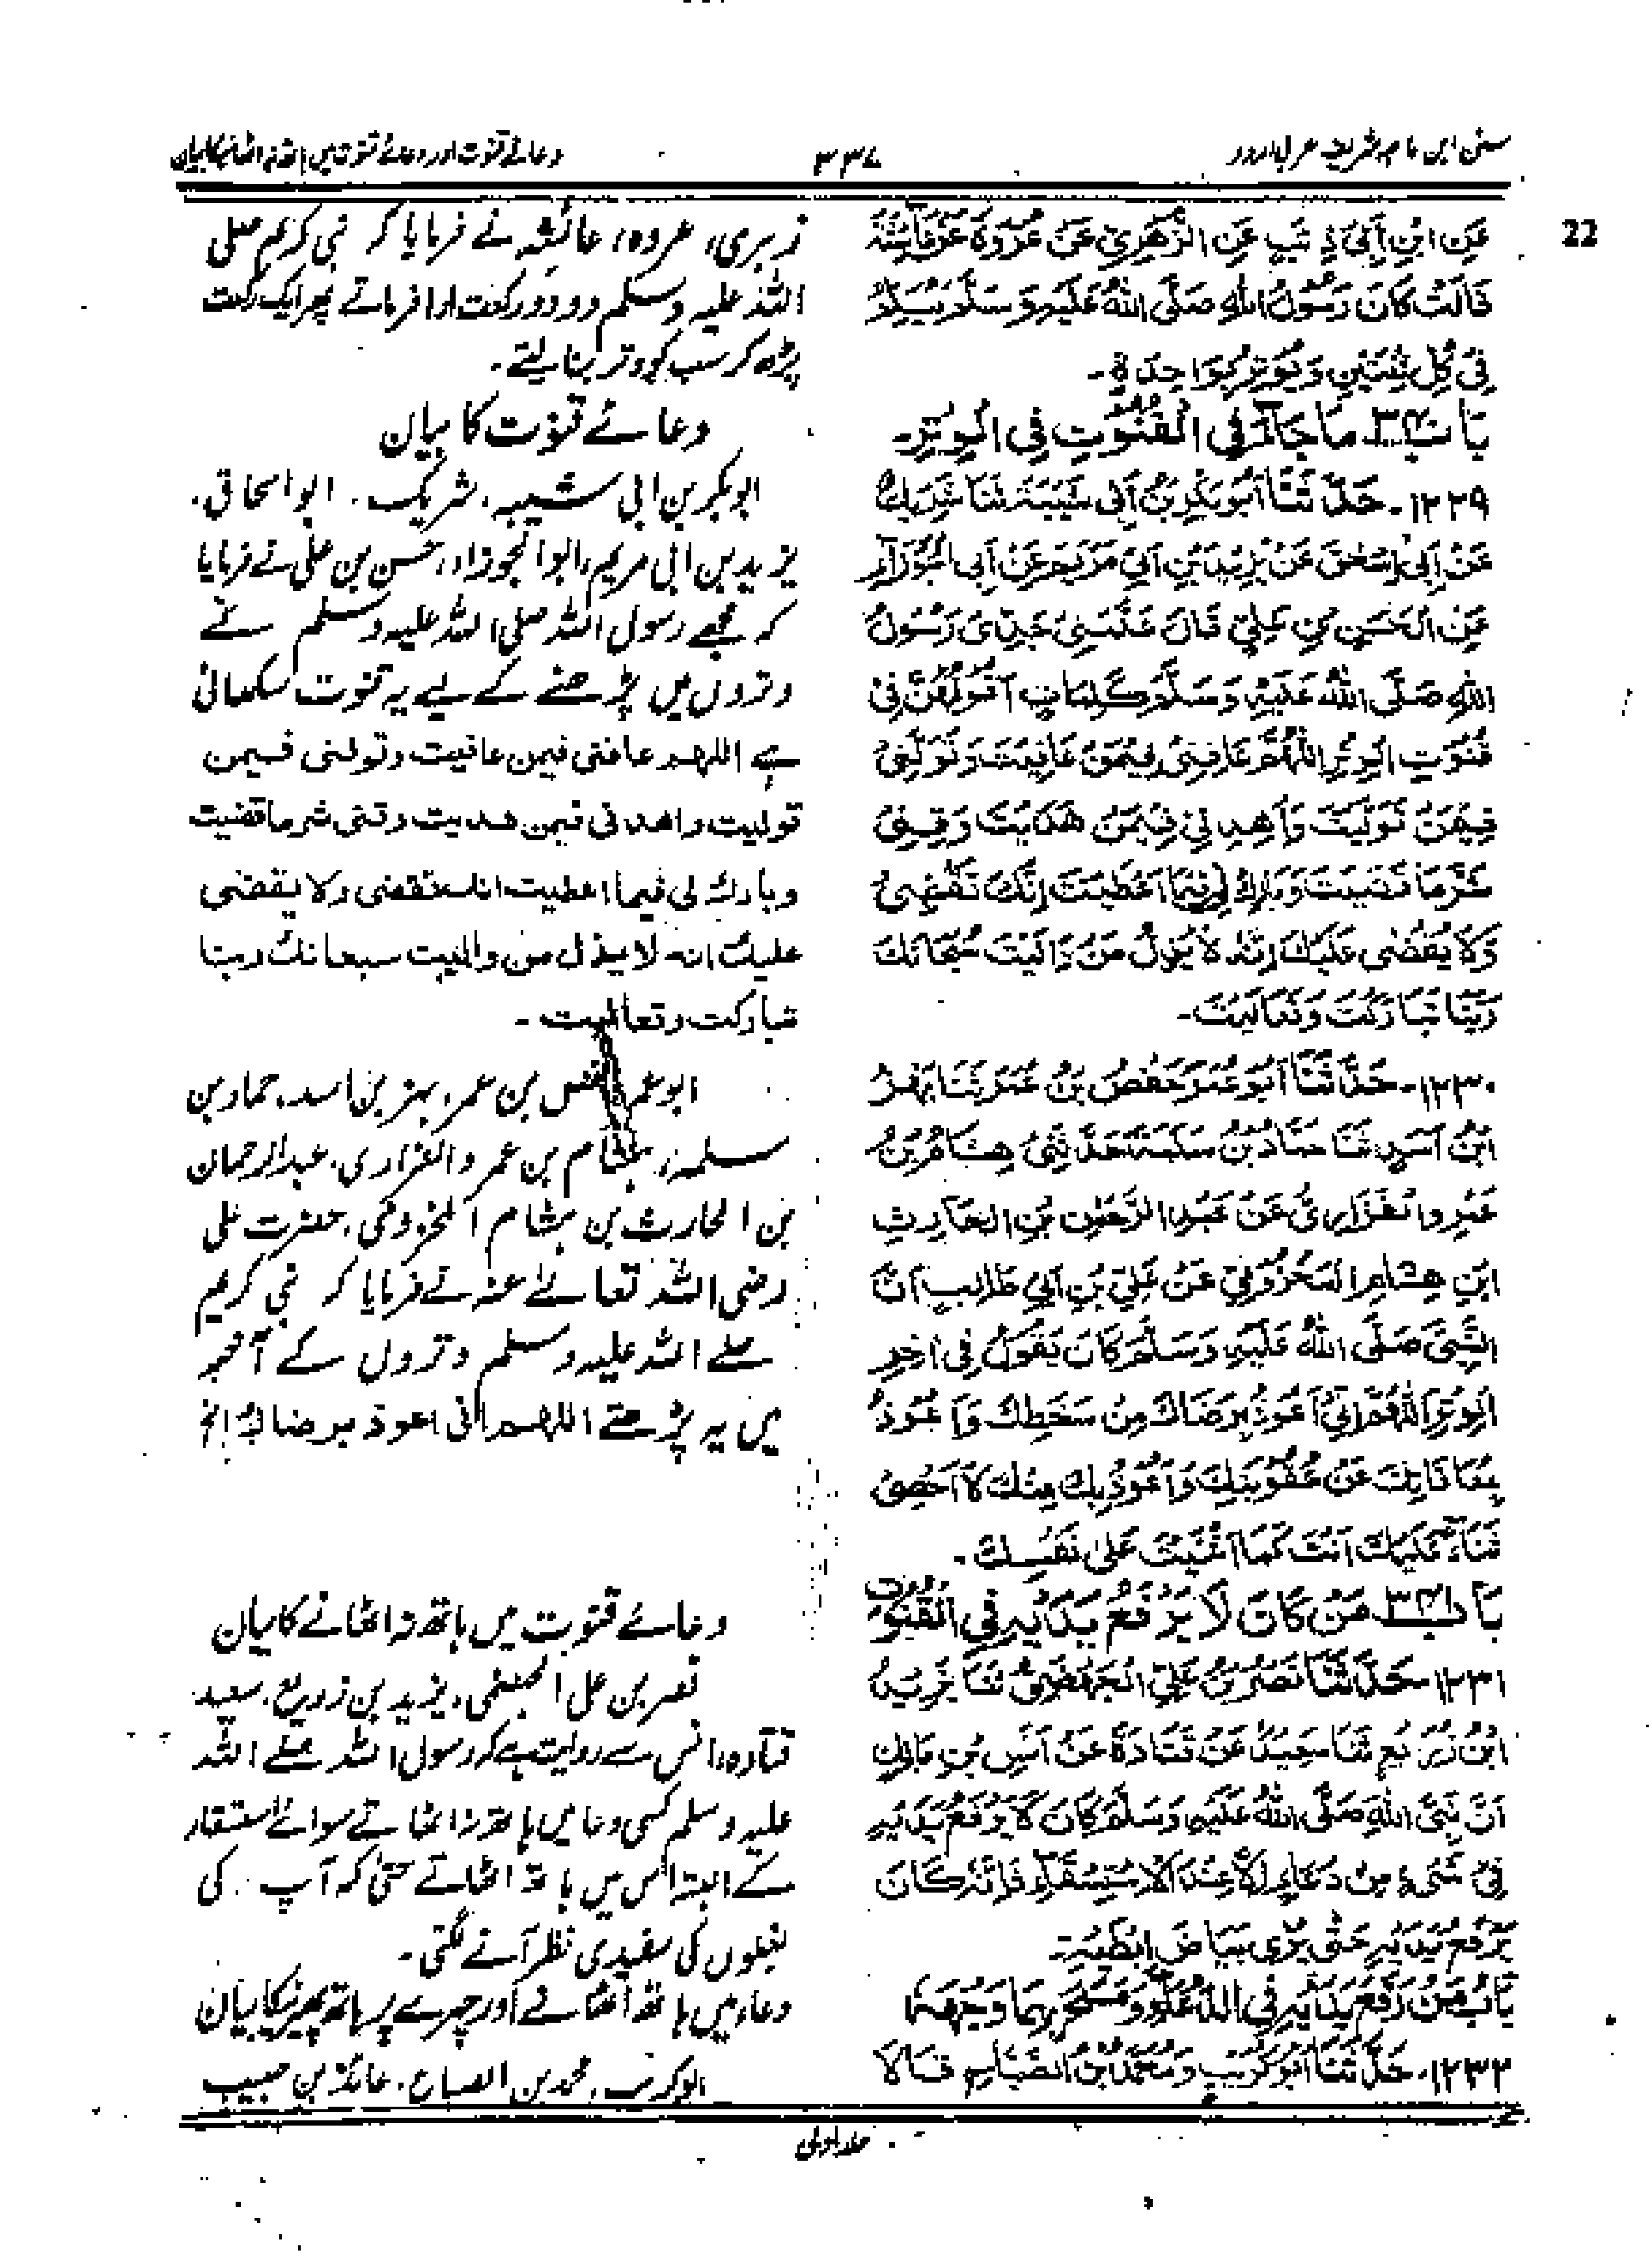 سنن ابن ماجہ شریف عربی اردو
۳۳۷
دعائے قنوت اور دعائے قنوت میں ہاتھ نہ اٹھانیکا بیان
22
عَنِ ابْنِ اَبِیْ ذِئْبٍ عَنِ الزُّهْرِیِّ عَنْ عُرْوَةَ عَنْ عَائِشَةَ
قَالَتْ كَانَ رَسُوْلُ اللهِ صَلَّى اللهُ عَلَيْهِ وَسَلَّمَ يُسَلِّمُ
فِیْ كُلِّ ثِنْتَيْنِ وَيُوْتِرُ بِوَاحِدَةٍ۔
بَابُ ۳۴۰ مَا جَآءَ فِی الْقُنُوْتِ فِی الْوِتْرِ۔
۱۲۲۹۔ حَدَّثَنَا اَبُوْ بَكْرِ بْنُ اَبِیْ شَيْبَةَ ثَنَا شَرِيْكٌ
عَنْ اَبِیْ اِسْحٰقَ عَنْ بُرَيْدِ بْنِ اَبِیْ مَرْيَمَ عَنْ اَبِی الْجَوْزَآءِ
عَنِ الْحَسَنِ بْنِ عَلِیٍّ قَالَ عَلَّمَنِیْ جَدِّیْ رَسُوْلُ
اللهِ صَلَّى اللهُ عَلَيْهِ وَسَلَّمَ كَلِمَاتٍ اَقُوْلُهُنَّ فِیْ
قُنُوْتِ الْوِتْرِ اَللّٰهُمَّ عَافِنِیْ فِيْمَنْ عَافَيْتَ وَتَوَلَّنِیْ
فِيْمَنْ تَوَلَّيْتَ وَاهْدِنِیْ فِيْمَنْ هَدَيْتَ وَقِنِیْ
شَرَّ مَا قَضَيْتَ وَبَارِكْ لِیْ فِيْمَا اَعْطَيْتَ اِنَّكَ تَقْضِیْ
وَلَا يُقْضٰى عَلَيْكَ اِنَّهٗ لَا يَذِلُّ مَنْ وَّالَيْتَ سُبْحَانَكَ
رَبَّنَا تَبَارَكْتَ وَتَعَالَيْتَ۔
۱۲۳۰۔ حَدَّثَنَا اَبُوْ عُمَرَ حَفْصُ بْنُ عُمَرَ ثَنَا بَهْزُ
ابْنُ اَسَدٍ ثَنَا حَمَّادُ بْنُ سَلَمَةَ حَدَّثَنِیْ هِشَامُ بْنُ
عَمْرٍو الْفَزَارِیُّ عَنْ عَبْدِ الرَّحْمٰنِ بْنِ الْحَارِثِ
ابْنِ هِشَامِ الْمَخْزُوْمِیِّ عَنْ عَلِیِّ بْنِ اَبِیْ طَالِبٍ اَنَّ
النَّبِیَّ صَلَّى اللهُ عَلَيْهِ وَسَلَّمَ كَانَ يَقُوْلُ فِیْ اٰخِرِ
الْوِتْرِ اَللّٰهُمَّ اِنِّیْ اَعُوْذُ بِرِضَاكَ مِنْ سَخَطِكَ وَاَعُوْذُ
بِمُعَافَاتِكَ مِنْ عُقُوْبَتِكَ وَاَعُوْذُ بِكَ مِنْكَ لَا اُحْصِیْ
ثَنَآءً عَلَيْكَ اَنْتَ كَمَا اَثْنَيْتَ عَلٰى نَفْسِكَ۔
بَابُ ۳۴۱ مَنْ كَانَ لَا يَرْفَعُ يَدَيْهِ فِی الْقُنُوْتِ
۱۲۳۱۔ حَدَّثَنَا نَصْرُ بْنُ عَلِیٍّ الْجَهْضَمِیُّ ثَنَا يَزِيْدُ
ابْنُ زُرَيْعٍ ثَنَا سَعِيْدٌ عَنْ قَتَادَةَ عَنْ اَنَسِ بْنِ مَالِكٍ
اَنَّ نَبِیَّ اللهِ صَلَّى اللهُ عَلَيْهِ وَسَلَّمَ كَانَ لَا يَرْفَعُ يَدَيْهِ
فِیْ شَیْءٍ مِنْ دُعَائِهٖ اِلَّا عِنْدَ الْاِسْتِسْقَآءِ فَاِنَّهٗ كَانَ
يَرْفَعُ يَدَيْهِ حَتّٰى يُرٰى بَيَاضُ اِبْطَيْهِ۔
بَابُ مَنْ رَفَعَ يَدَيْهِ فِی الدُّعَآءِ وَمَسَحَ بِهِمَا وَجْهَهٗ
۱۲۳۲۔ حَدَّثَنَا اَبُوْ كُرَيْبٍ وَمُحَمَّدُ بْنُ الصَّبَّاحِ قَالَا
زہری، عروہ، عائشہ نے فرمایا کہ نبی کریم صلی
اللہ علیہ وسلم دو دو رکعت ادا فرماتے پھر ایک رکعت
پڑھ کر سب کو وتر بنا لیتے۔
دعائے قنوت کا بیان
ابوبکر بن ابی شیبہ، شریک، ابو اسحاق،
یزید بن ابی مریم، ابوالجوزاء، حسن بن علی نے فرمایا
کہ مجھے رسول اللہ صلی اللہ علیہ وسلم نے
وتروں میں پڑھنے کے لیے یہ قنوت سکھائی
ہے اللهم عافنی فیمن عافیت وتولنی فیمن
تولیت واهدنی فیمن هدیت وقنی شر ما قضیت
وبارك لی فیما اعطیت انك تقضی ولا یقضی
علیك انه لا یذل من والیت سبحانك ربنا
تبارکت وتعالیت۔
ابوعمر حفص بن عمر، بہز بن اسد، حماد بن
سلمہ، ہشام بن عمرو الفزاری، عبدالرحمان
بن الحارث بن ہشام المخزومی، حضرت علی
رضی اللہ تعالےٰ عنہ نے فرمایا کہ نبی کریم
صلے اللہ علیہ وسلم وتروں کے آخر
میں یہ پڑھتے اللهم انی اعوذ برضاك الخ
دعائے قنوت میں ہاتھ نہ اٹھانے کا بیان
نصر بن علی الجہضمی، یزید بن زریع، سعید،
قتادہ، انس سے روایت ہے کہ رسول اللہ صلے اللہ
علیہ وسلم کسی دعا میں ہاتھ نہ اٹھاتے سوائے استسقاء
کے البتہ اس میں ہاتھ اٹھاتے حتیٰ کہ آپ کی
بغلوں کی سفیدی نظر آنے لگتی۔
دعاء میں ہاتھ اٹھانے اور چہرے پر ہاتھ پھیرنیکا بیان
ابوکریب، محمد بن الصباح، عائذ بن حبیب
جلد اول